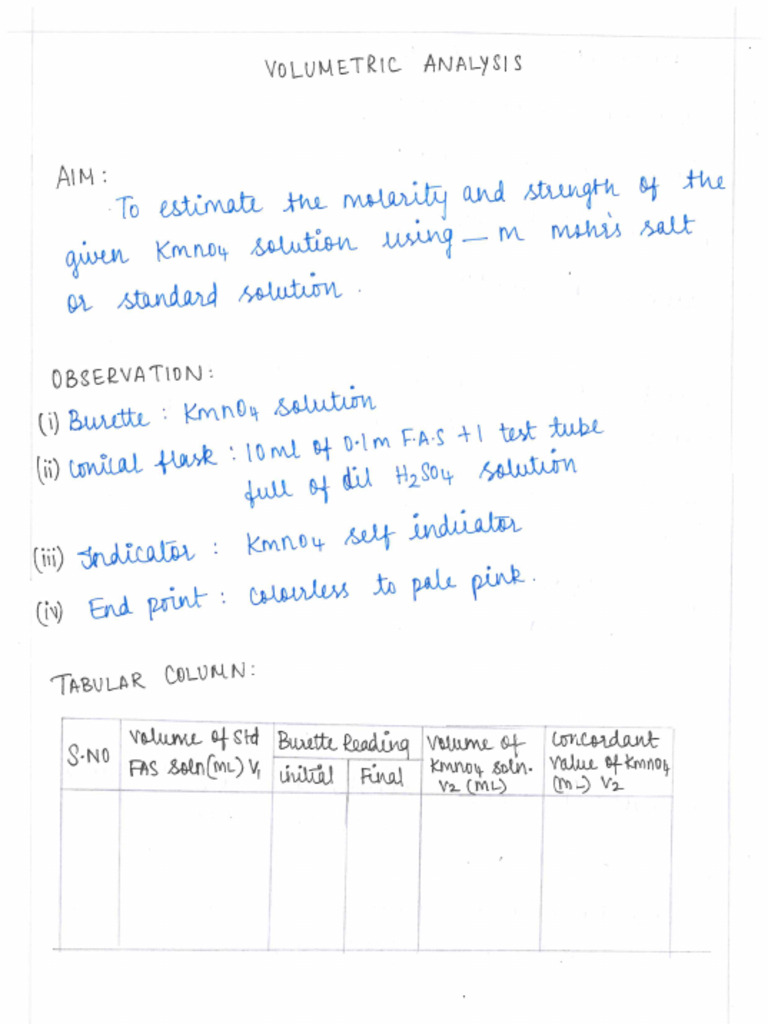 VOLUMETRIC ANALYSIS
AIM:
To estimate the molarity and strength of the
given Kmno4 solution using — m mohr's salt
or standard solution.
OBSERVATION:
(i) Burette : KmnO4 solution
(ii) Conical flask : 10ml of 0.1m F.A.S + 1 test tube
full of dil H2SO4 solution
(iii) Indicator : Kmno4 self indicator
(iv) End point : Colourless to pale pink.
TABULAR COLUMN:
S.NO
Volume of Std
FAS soln(mL) V1
Burette Reading
initial
Final
Volume of
Kmno4 soln.
V2 (ML)
Concordant
value of Kmno4
(mL) V2